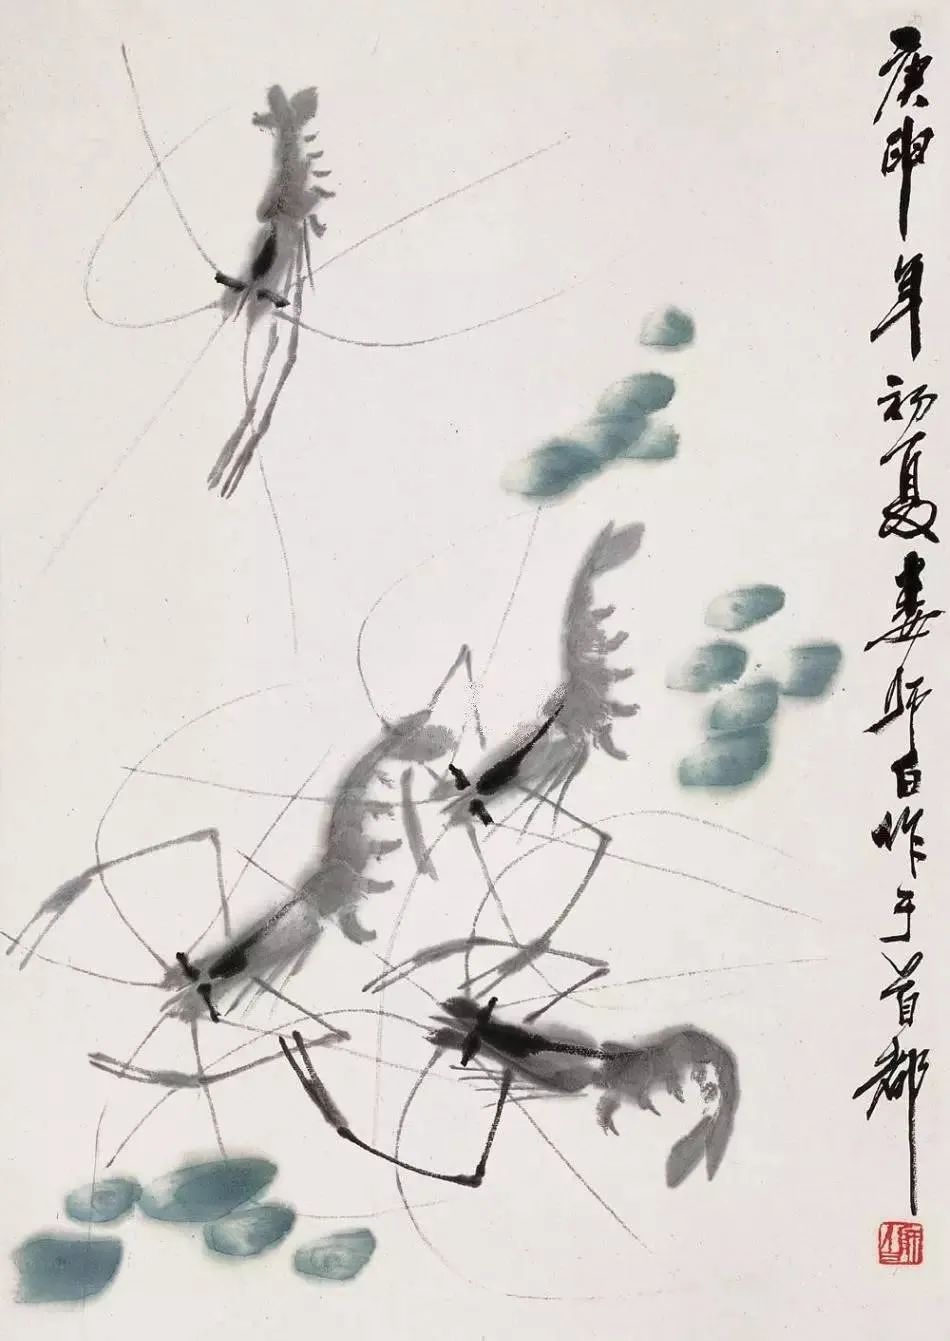 庚申年初夏娄师白作于首都